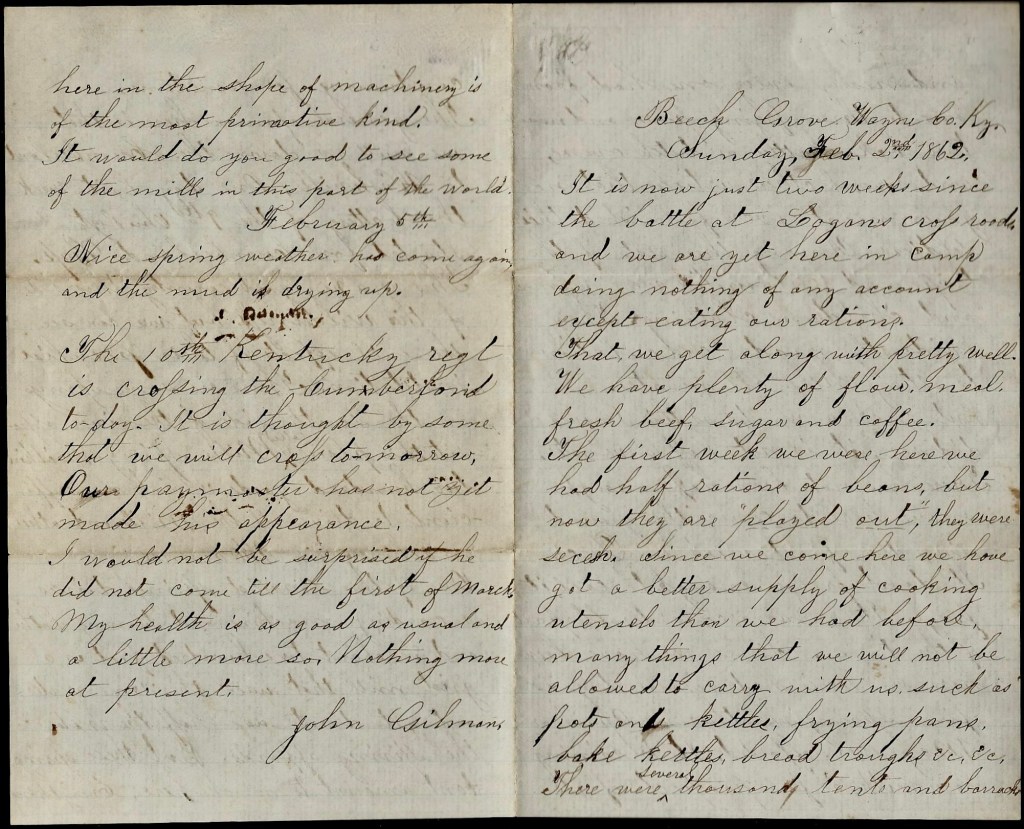 Beech Grove, Wayne Co. Ky.
Sunday, Feb. 2nd 1862.
It is now just two weeks since
the battle at Logans cross roads,
and we are yet here in camp
doing nothing of any account
except eating our rations.
That we get along with pretty well.
We have plenty of flour, meal,
fresh beef, sugar and coffee.
The first week we were here we
had half rations of beans, but
now they are "played out", they were
secesh. Since we come here we have
got a better supply of cooking
utensels than we had before,
many things that we will not be
allowed to carry with us, such as
Pots and kettles, frying pans,
bake kettles, bread troughs &c, &c,
There were several thousand tents and barracks
here in the shape of machinery is
of the most primative kind.
It would do you good to see some
of the mills in this part of the world.
February 5th
Nice spring weather has come again,
and the mud is drying up.
The 10th Kentucky regt
is crossing the Cumberland
to-day. It is thought by some
that we will cross to-morrow,
Our paymaster has not yet
made his appearance.
I would not be surprised if he
did not come till the first of March.
My health is as good as usual and
a little more so, Nothing more
at present.
John Gilman.